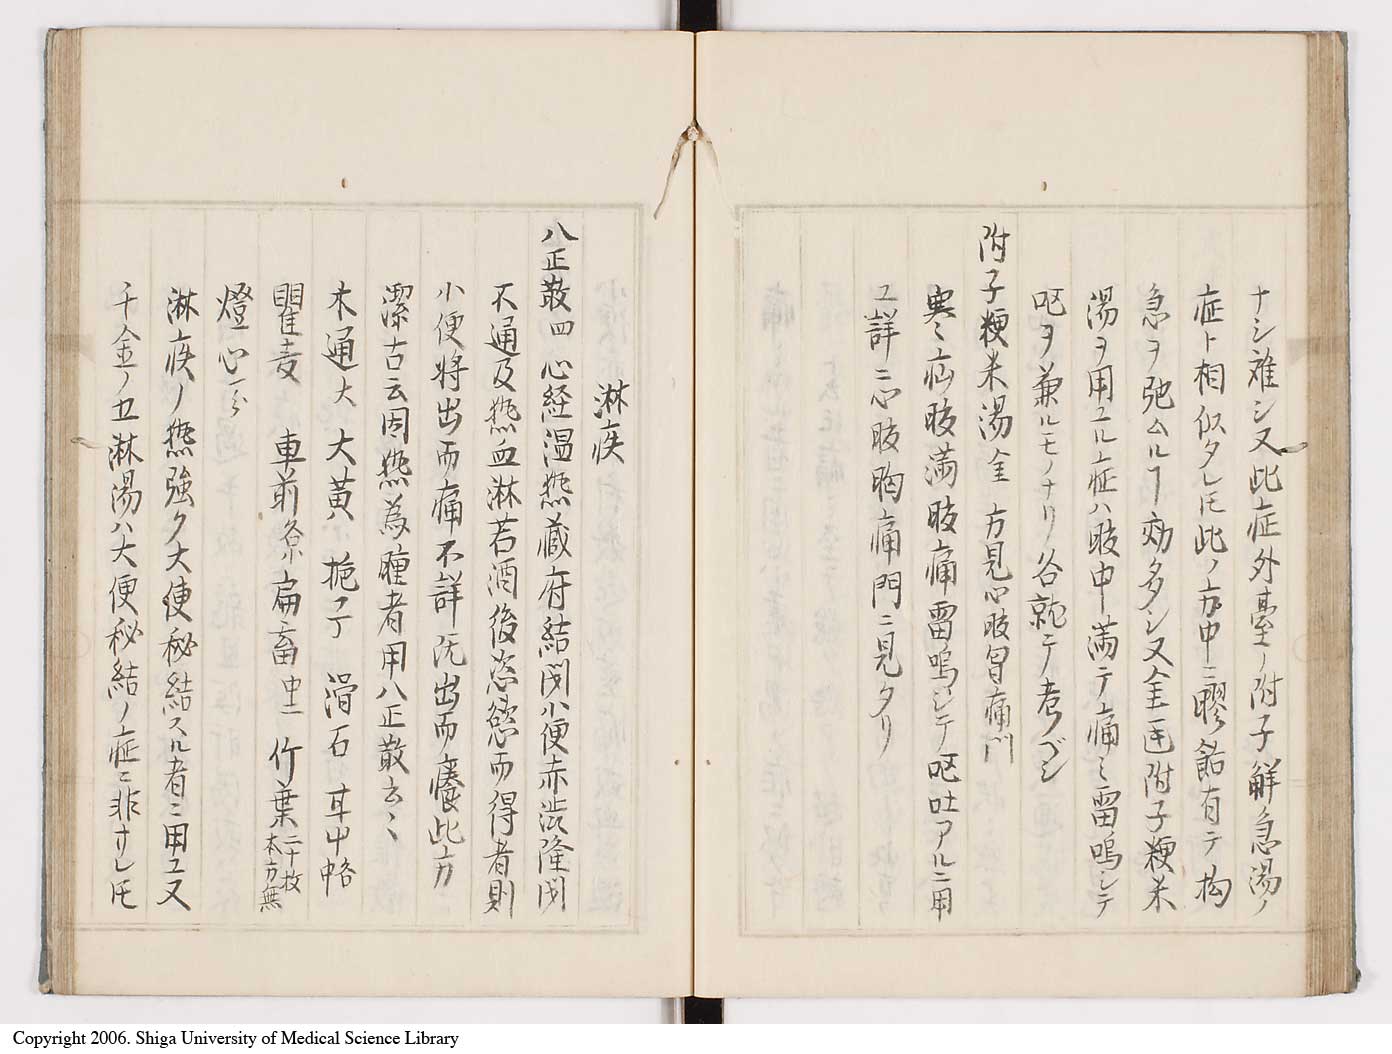 ナシ難シ又此症外臺ノ附子解急湯ノ
症ト相似タレ𪜈此ノ方中ニ膠飴有テ拘
急ヲ弛ムルヿ効多シ又金匱附子粳米
湯ヲ用ユル症ハ腹中満テ痛ミ雷鳴シテ
呕ヲ兼ルモノナリ各就テ考フベシ
附子粳米湯金 方見心腹胃痛門
寒ミ疝腹満腹痛雷鳴シテ呕吐アルニ用
ユ詳ニ心腹胸痛門ニ見タリ
淋疾
八正散四 心経温热蔵府結閉小便赤渋隆閉
不通及热血淋若酒後恣慾而得者則
小便將出而痛不詳既出而痛此方
潔古云因热為腫者用八正散云〻
木通大 大黄ハ 梔子 滑石 耳中 輅
瞿麦 車前各京 扁畜中 竹葉二十枚本方無
燈心
淋疾ノ热強ク大便秘結スル者ニ用ユ又
千金ノ五淋湯ハ大便秘結ノ症ニ非ナレ𪜈
Copyright 2006. Shiga University of Medical Science Library